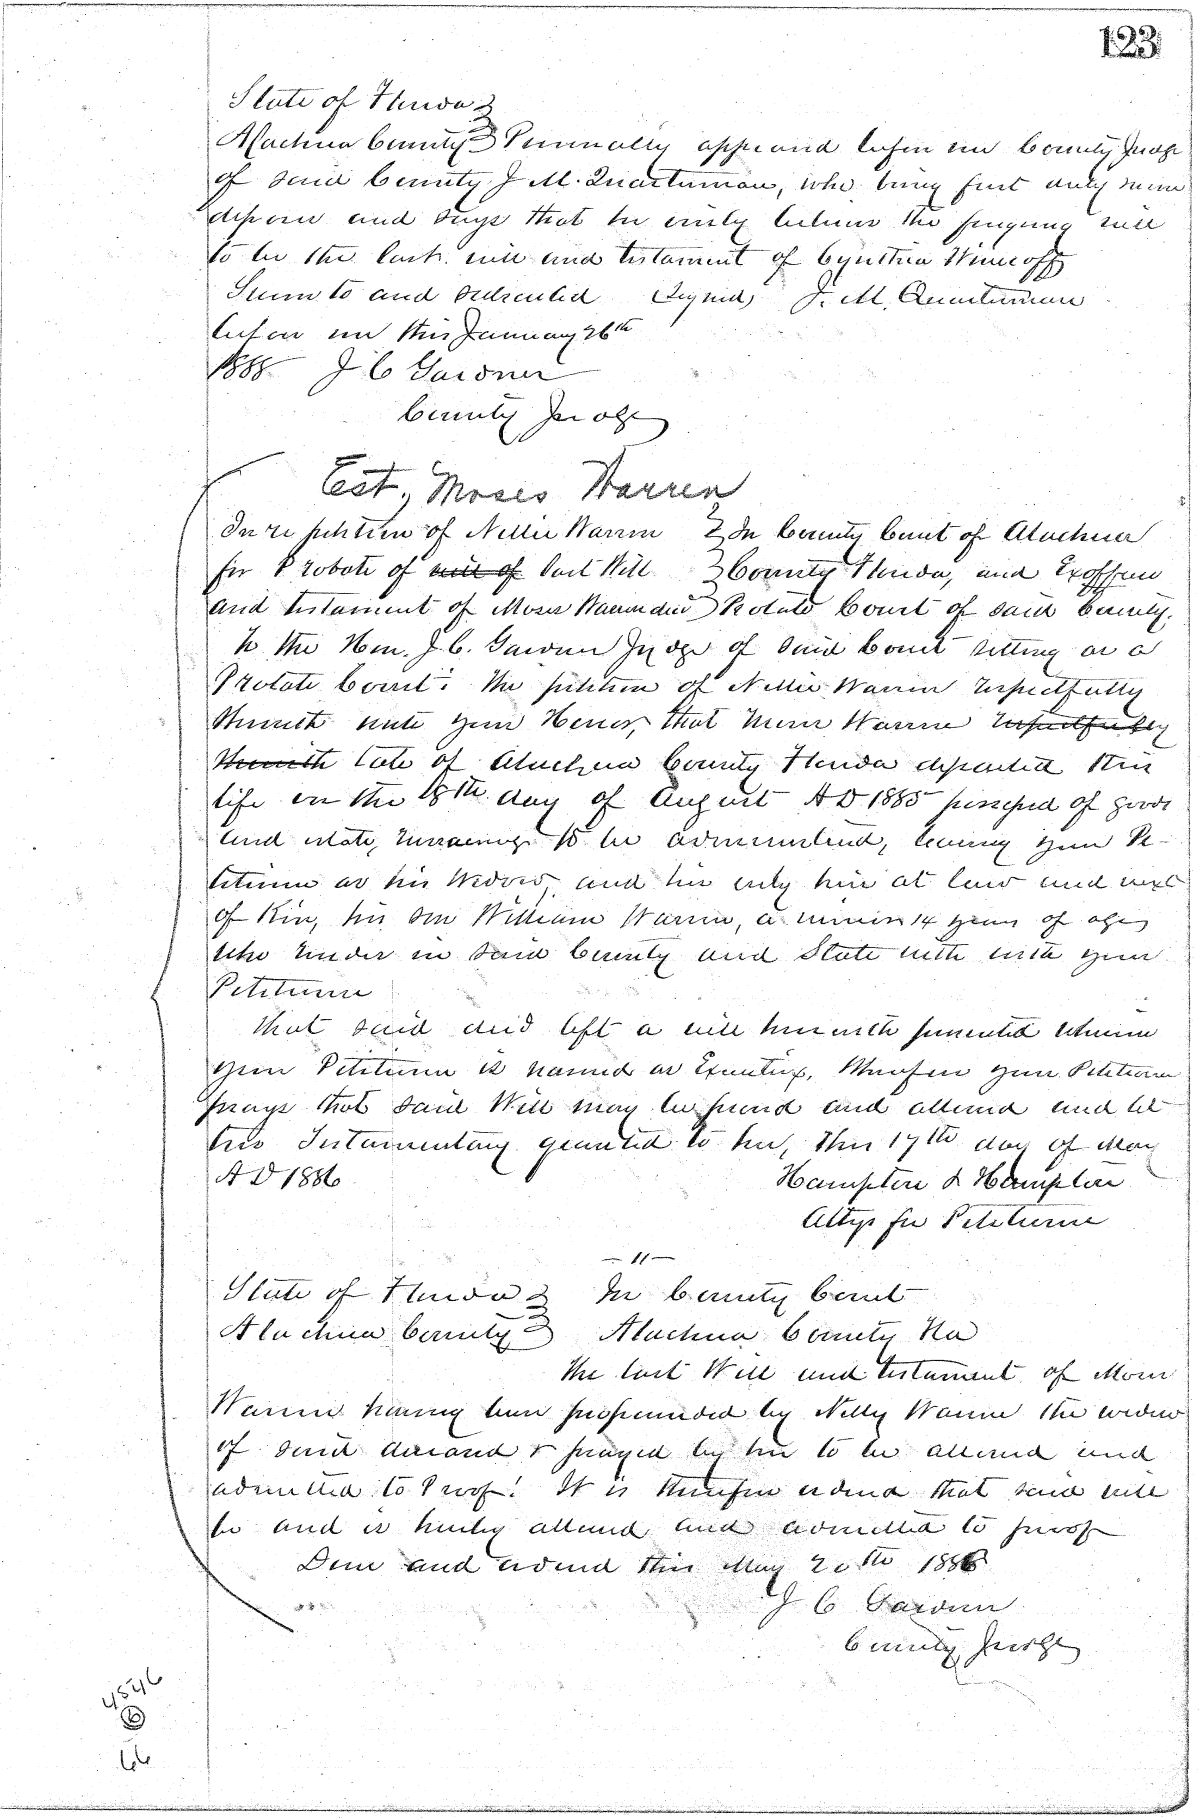 123
State of Florida }
Alachua County } Personally appeared before me County Judge
of said County J. M. Quarterman, who being first duly sworn
deposes and says that he verily believes the foregoing will
to be the last will and testament of Cynthia Wimcoff
Sworn to and subscribed (Signed) J. M. Quarterman
before me this January 26th
1888 J C Gardner
County Judge
Est, Moses Warren
In re petition of Nellie Warren } In County Court of Alachua
for Probate of will of last Will } County Florida, and Exofficio
and testament of Moses Warren decd } Probate Court of said County.
To the Hon. J. C. Gardner Judge of said Court sitting as a
Probate Court: The petition of Nellie Warren respectfully
sheweth unto your Honor, that Moses Warren respectfully
sheweth late of Alachua County Florida departed this
life on the 18th day of August A D 1885 possessed of goods
and estate, remaining to be administered, leaving your Pe-
titioner as his widow, and his only heir at law and next
of Kin, his son William Warren, a minor 14 years of age
who resides in said County and State with your
Petitioner
that said decd left a will herewith presented wherein
your Petitioner is named as Executrix, Wherefore your Petitioner
prays that said Will may be proved and allowed and let
ters Testamentary granted to her, this 17th day of May
A D 1886 Hampton & Hampton
Attys for Petitioner
— " —
State of Florida } In County Court
Alachua County } Alachua County Fla
The last Will and testament of Moses
Warren having been propounded by Nelly Warren the widow
of said deceased & prayed by her to be allowed and
admitted to Proof! It is therefore ordered that said will
be and is hereby allowed and admitted to proof
Done and ordered this May 20th 1886
J C Gardner
County Judge
4546
B
66